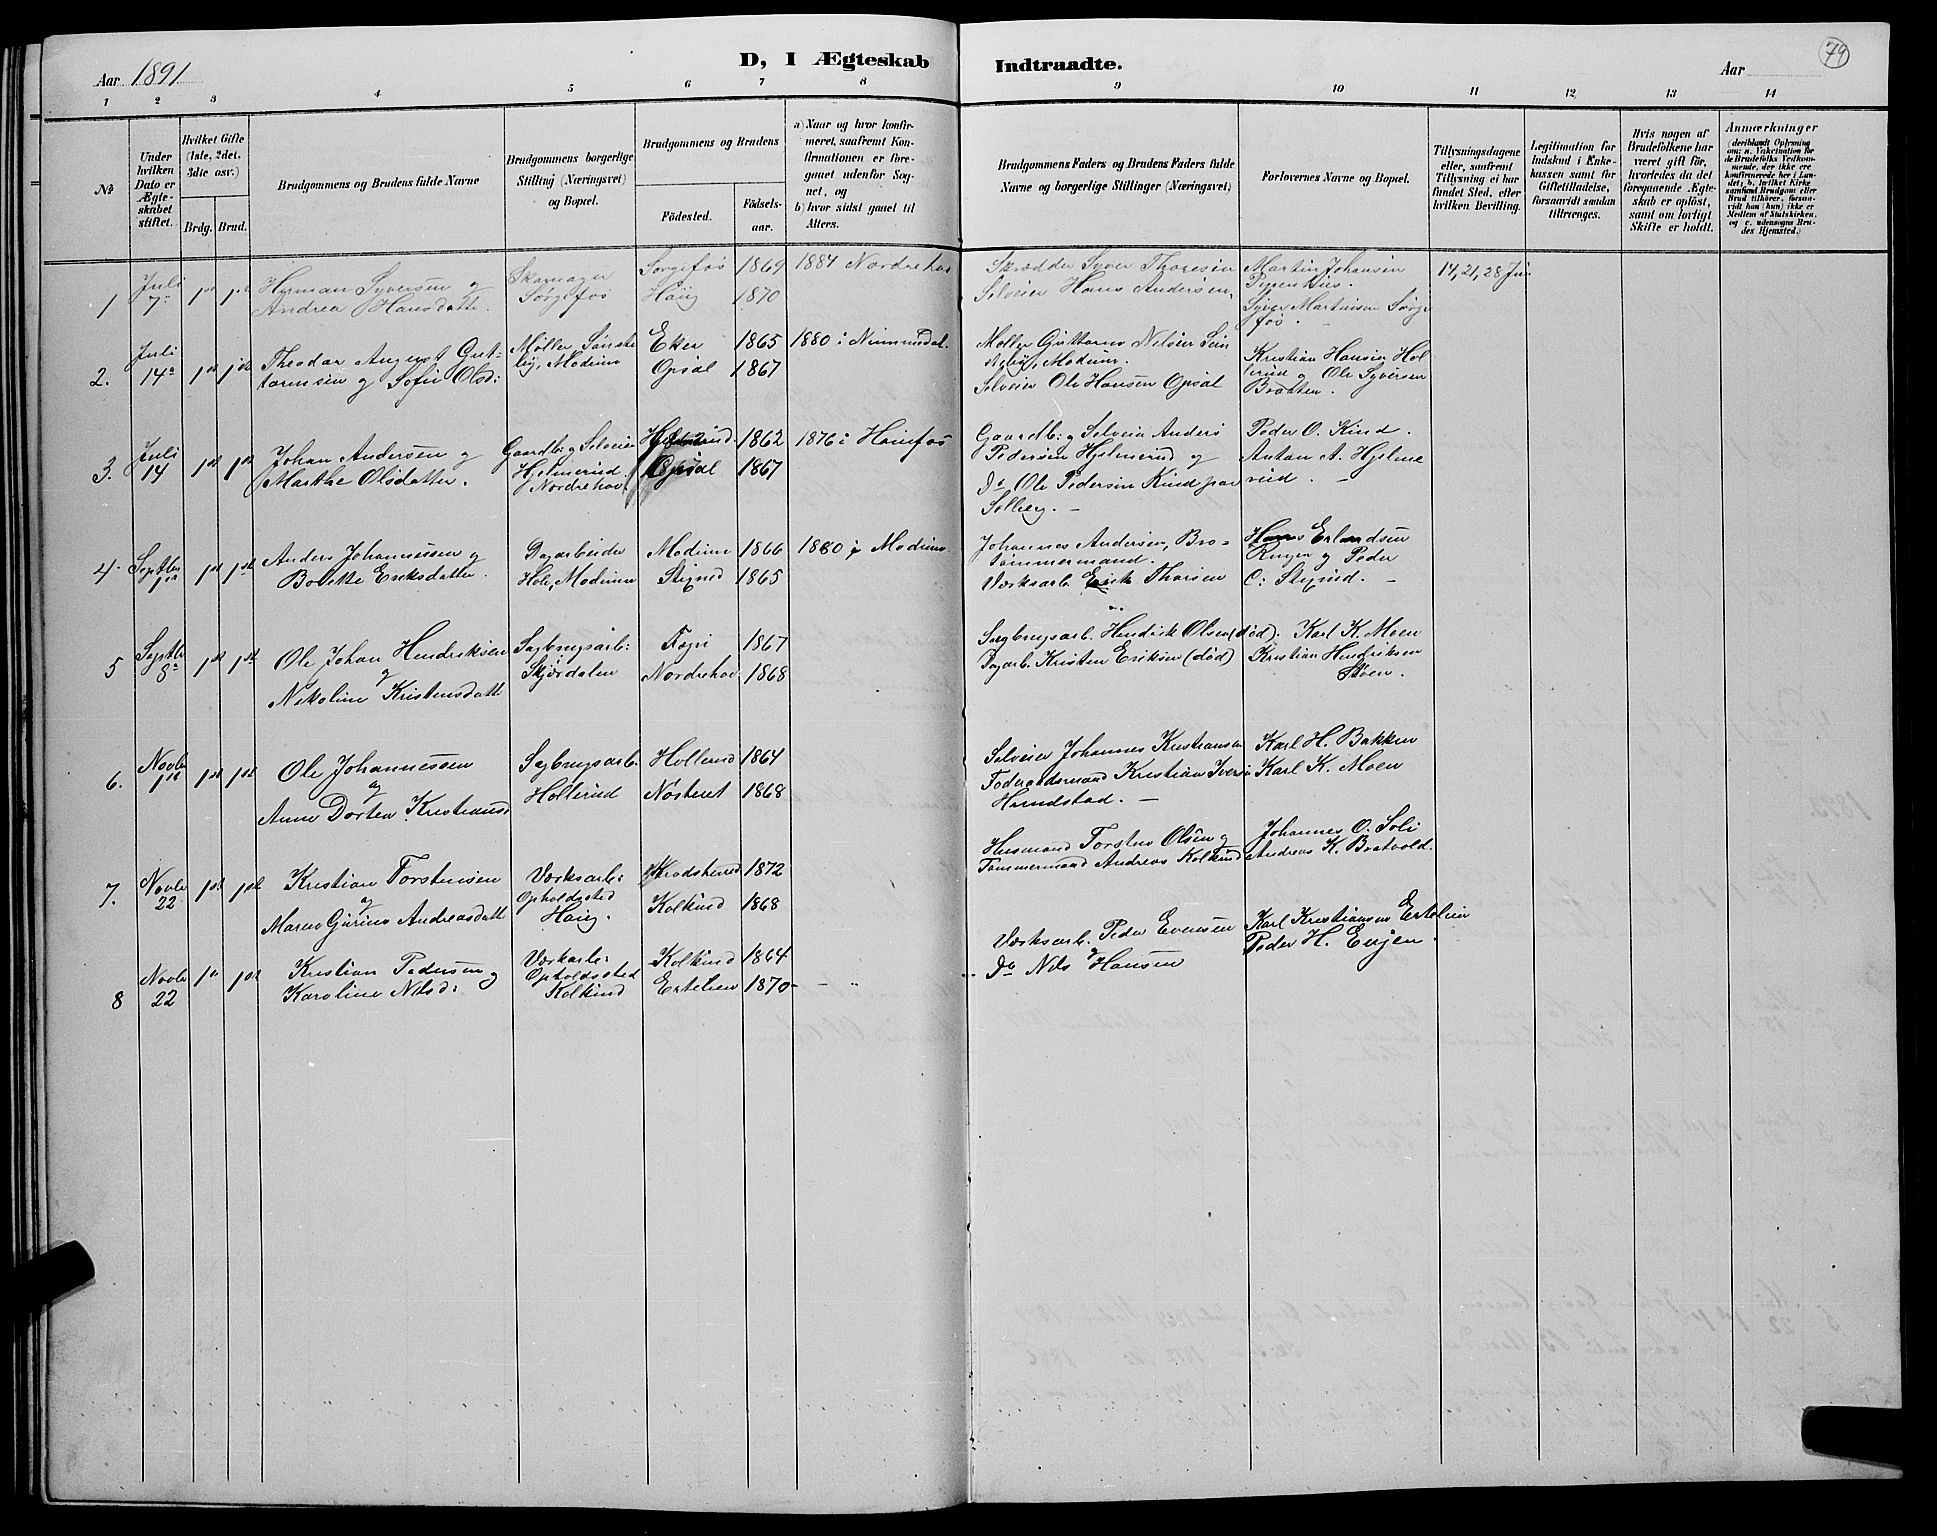 Aar 1891
D, I Ægteskab Indtraadte.
Aar
79
1 2 3 4 5 6 7 8 9 10 11 12 13 14
No
Under hvilken Dato er Ægteskabet stiftet.
Hvilket Gifte (1ste, 2det, 3die osv.)
Brdg. Brud.
Brudgommens og Brudens fulde Navne
Brudgommens borgerlige Stilling (Næringsvei) og Bopæl.
Brudgommens og Brudens
Fødested.
Fødselsaar.
a) Naar og hvor konfirmeret, saafremt Konfirmationen er foregaaet udenfor Sognet, og
b) hvor sidst gaaet til Alters.
Brudgommens Faders og Brudens Faders fulde Navne og borgerlige Stillinger (Næringsvei)
Forlovernes Navne og Bopæl.
Tillysningsdagene eller, saafremt Tillysning ei har fundet Sted, efter hvilken Bevilling.
Legitimation for Indskud i Enkekassen samt for Giftetilladelse, forsaavidt saadan tiltrænges.
Hvis nogen af Brudefolkene har været gift før, hvorledes da det foregaaende Ægteskab er opløst, samt om lovligt Skifte er holdt.
Anmærkninger
(deriblandt Oplysning om: a. Vakcination for de Brudefolks Vedkommende, der ikke ere konfirmerede her i Landet; b. hvilket Kirkesamfund Brudgom eller Brud tilhører, forsaavidt han (hun) ikke er Medlem af Statskirken, og c. udensogns Brudes Hjemsted.)
1 Juli 7de 1ste 1ste
Herman Syversen og
Andrea Hansdatter.
Skomager
Sørgefos
Sørgefos 1869 1884 Nordrehov
Haug 1870
Skrædder Syver Thoresen
Selveier Hans Andersen,
Martin Johansen
Syver Martinsen Sørgefos.
14, 21, 28 Juni
2. Juli 14de 1ste 1ste
Theodor August Guttormsen og Sofie Olsd:
Møller
Modum
Eker 1865 1880 i
Opsal 1867
Møller Guttorm Nilsen
Modum.
Selveier Ole Hansen Opsal
Kristian Hansen Hollerud og Ole Syversen
Braaten.
3. Juli 14 1ste 1ste
Johan Andersen og
Marthe Olsdatter.
Gaardb: og Selveier
Hjelmerud
Nordrehov.
Hjelmerud. 1862 1876 i Hønefos
Opsal 1867
Gaardb: og Selveier Anders
Pedersen Hjelmerud og
Do Ole Pedersen Kind paa
Solberg. —
Peder O. Kind.
Anton A. Hjelmerud. —
4. Septbr 1ste 1ste 1ste
Anders Johannessen og
Bolette Eriksdatter.
Dagarbeider
Hole, Modum
Modum 1866 1880 i Modum
Stigud 1865
Johannes Andersen, Bro-
tømmermand.
Værksarb. Erik Thorsen
Hans Erlandsen
Ringen og Peder
C: Stigud. —
5 Septbr 8de 1ste 1ste
Ole Johan Hendriksen
og
Nikoline Kristensdatt
Sagbrugsarb:
Skjørdalen
1867
Nordrehov 1868
Sagbrugsarb. Hendrik Olsen (død).
Dagarb. Kristen Eriksen (død)
Karl K. Moen
Kristian Hendriksen
Moen.
6. Novbr 1ste 1ste 1ste
Ole Johannessen
og
Anne Dortea Kristiansd
Sagbrugsarb.
Hollerud
Hollerud 1864
Nøsteret 1868
Selveier Johannes Kristiansen
Kristian Iversen
Hundstad. —
Karl H. Bakken
Karl K. Moen
7. Novbr 22 1ste 1ste
Kristian Torstensen
og
Maren Gurine Andreasdatt
Værksarb:
Opholdssted
Haug.
Krødsherred 1872
Kolkind 1868
Husmand Torsten Olsen og
Tømmermand Andreas Kolkind
Johannes O. Soli
Andreas K. Bratvold.
8 Novbr 22 1ste 1ste
Kristian Pedersen og
Karoline Nilsd:
Værkarb:
Opholdssted
Kolkind
Kolkind 1864
Ertelien 1870
Værksarb. Peder Evensen
og
Do Nils Hansen
Karl Kristiansen Ertelien
Peder H. Enjen.